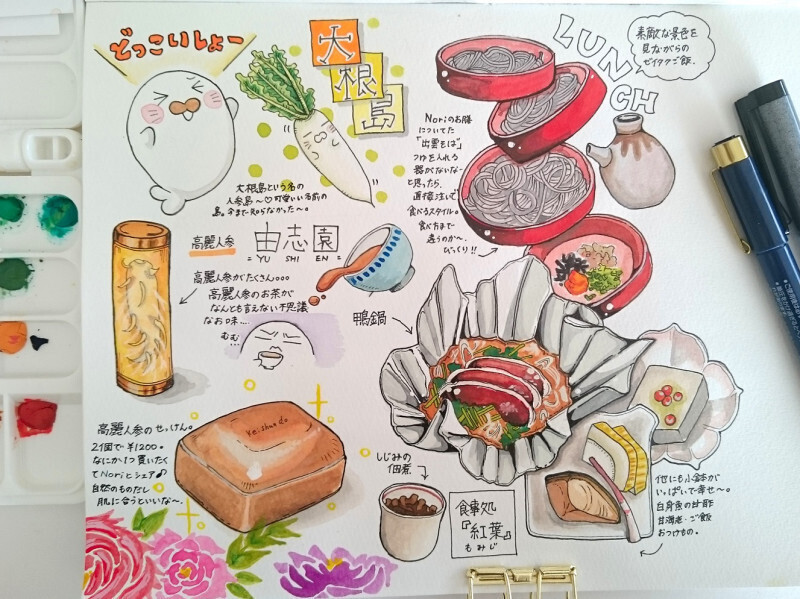 どっこいしょー
大
根
島
大根島という名の
人参島〜♡可愛いい名前の
島。今まで知らなかった〜。
LUNCH
素敵な景色を
見ながらの
ゼイタクご飯。
Noriのお膳
についてた
「出雲そば」
つゆを入れる
器がないな〜
と思ったら、
直接注いで
食べるスタイル。
食べ方まで
違うのか〜、
びっくり!!
高麗人参
由志園
=YU SHI EN=
高麗人参がたくさん。。。
高麗人参のお茶が
なんとも言えない不思議
なお味…
むむ…
鴨鍋
高麗人参のせっけん。
2個で¥1200。
なにか1つ買いたく
てNoriとシェア♪
自然のものだし
肌に合うといいな〜。
しじみの
佃煮
食事処
『紅葉』
もみじ
他にも小鉢が
いっぱいで幸せ〜。
白身魚の甘酢
甘海老・ご飯
おつけもの。